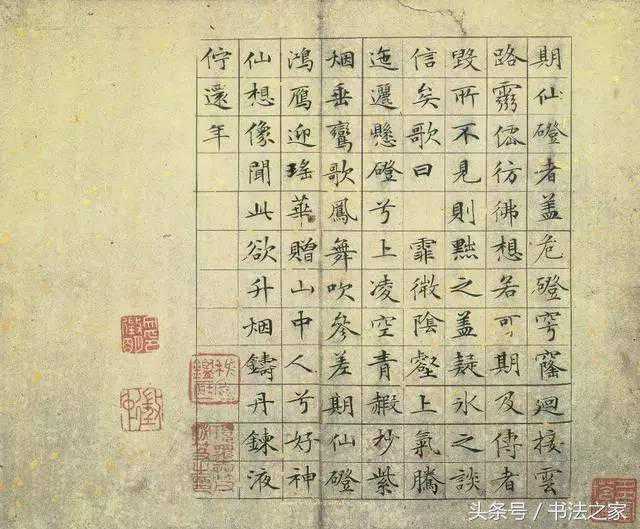 期仙磴者盖危磴穹窿迴接雲
路靈僊彷彿想若可期及傳者
毀所不見則黜之盖疑冰之談
信矣歌曰 霏微陰壑上氣騰
迤邐懸磴兮上凌空青赮杪紫
烟垂鸞歌鳳舞吹參差期仙磴
鴻鴈迎瑤華贈山中人兮好神
仙想像聞此欲升烟鑄丹鍊液
佇還年
头条号/书法之家